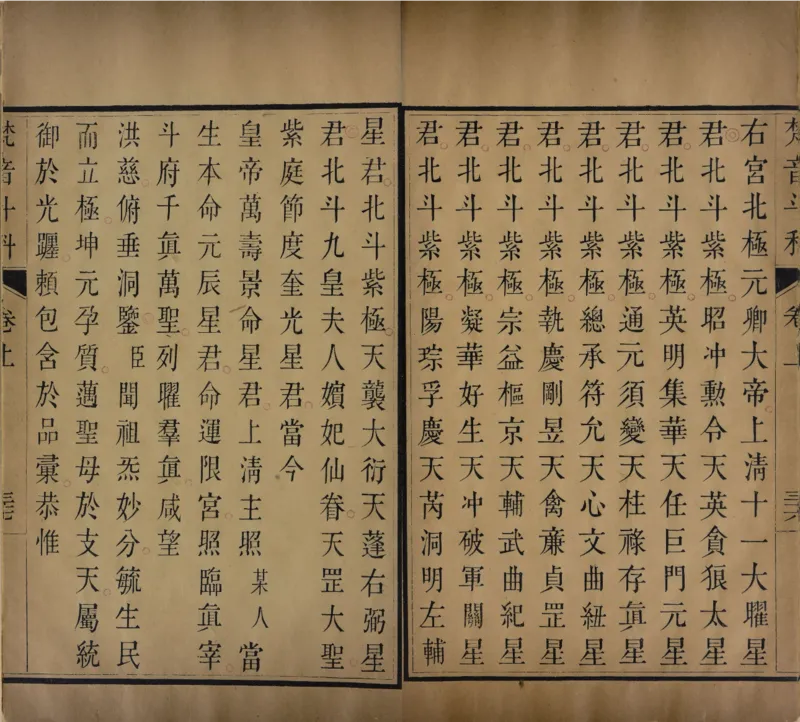 梵音斗科 卷上
右宮北極元卿大帝上淸十一大曜星
君北斗紫極昭冲勲令天英貪狼太星
君北斗紫極英明集華天任巨門元星
君北斗紫極通元須變天柱祿存眞星
君北斗紫極總承符允天心文曲紐星
君北斗紫極執慶剛昱天禽亷貞罡星
君北斗紫極宗益樞京天輔武曲紀星
君北斗紫極凝華好生天冲破軍關星
君北斗紫極陽琮孚慶天芮洞明左輔
星君北斗紫極天襲大衍天蓬右弼星
君北斗九皇夫人嬪妃仙眷天罡大聖
紫庭節度奎光星君當今
皇帝萬壽景命星君上淸主照某人當
生本命元辰星君命運限宮照臨眞宰
斗府千眞萬聖列曜羣眞咸望
洪慈俯垂洞鑒臣聞祖炁妙分毓生民
而立極坤元孕質邁聖母於支天屬統
御於光躔賴包含於品彙恭惟
梵音斗科 卷上